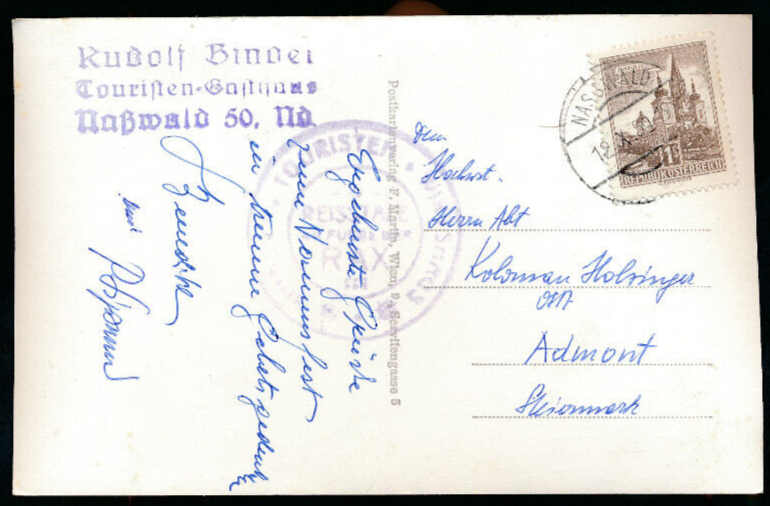 Rudolf Binder
Touristen-Gasthaus
Naßwald 50, Nd
Ergebenste Grüße
zum Namensfest
in treuem Gebetsgedenken
Benedikt
und
Postkartenverlag F. Martin, Wien, 9., Servitengasse 5
TOURISTEN
REISSTALE
RAX
NASSWALD
REPUBLIK ÖSTERREICH
Dem
Hochwst.
Herrn Abt
Koloman Holzinger
OSB
Admont
Steiermark